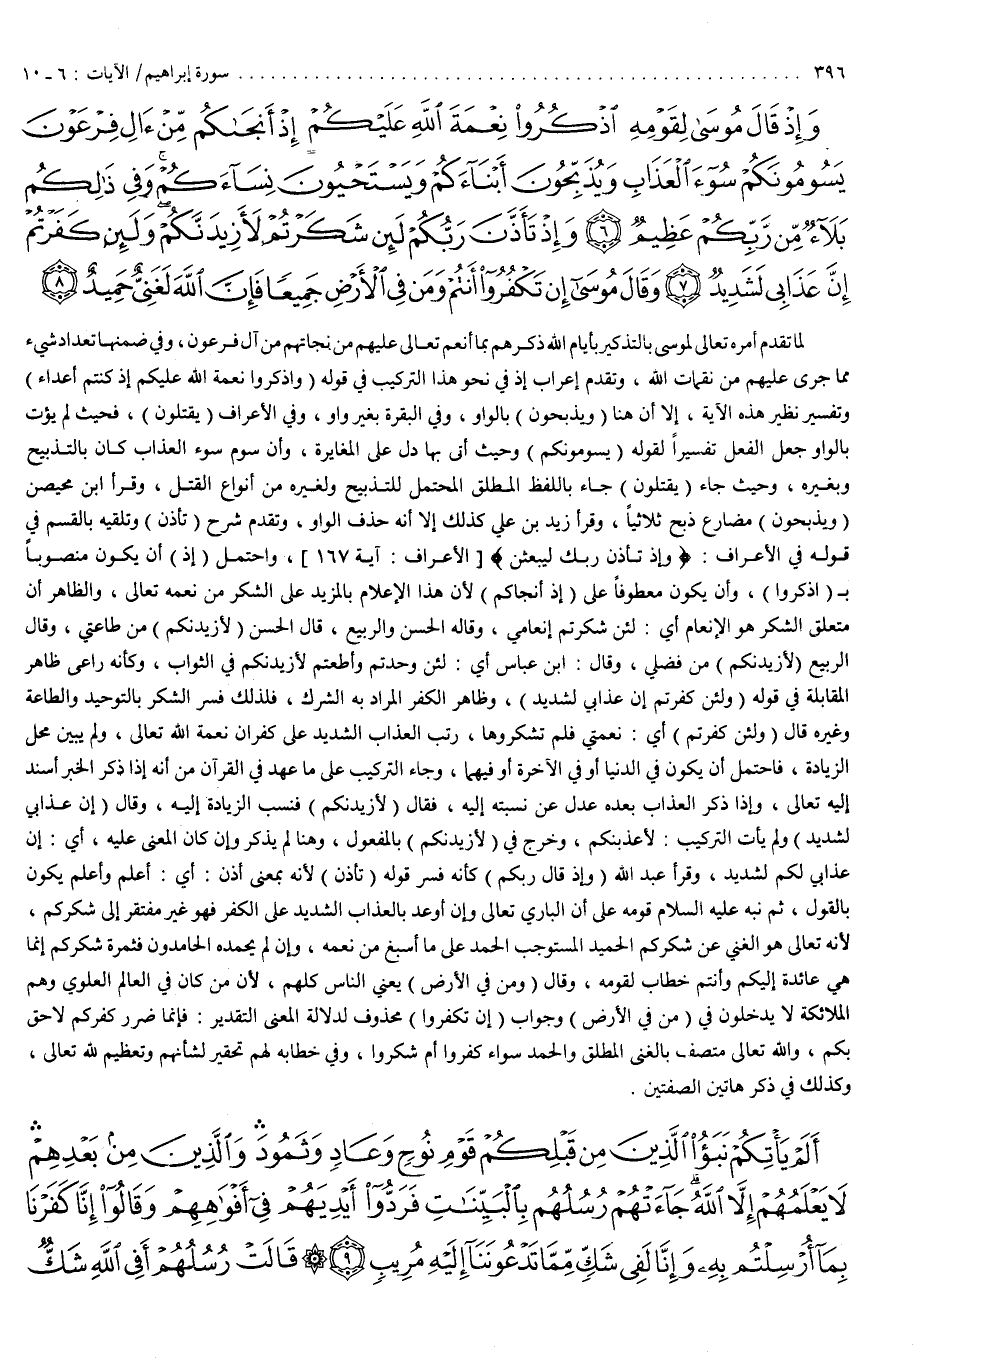 ٣٩٦ ........ سورة إبراهيم/ الآيات : ٦ ـ ١٠
وَإِذْ قَالَ مُوسَىٰ لِقَوْمِهِ ٱذْكُرُوا۟ نِعْمَةَ ٱللَّهِ عَلَيْكُمْ إِذْ أَنجَىٰكُم مِّنْ ءَالِ فِرْعَوْنَ
يَسُومُونَكُمْ سُوٓءَ ٱلْعَذَابِ وَيُذَبِّحُونَ أَبْنَآءَكُمْ وَيَسْتَحْيُونَ نِسَآءَكُمْ ۚ وَفِى ذَٰلِكُم
بَلَآءٌ مِّن رَّبِّكُمْ عَظِيمٌ ﴿٦﴾ وَإِذْ تَأَذَّنَ رَبُّكُمْ لَئِن شَكَرْتُمْ لَأَزِيدَنَّكُمْ ۖ وَلَئِن كَفَرْتُمْ
إِنَّ عَذَابِى لَشَدِيدٌ ﴿٧﴾ وَقَالَ مُوسَىٰٓ إِن تَكْفُرُوٓا۟ أَنتُمْ وَمَن فِى ٱلْأَرْضِ جَمِيعًا فَإِنَّ ٱللَّهَ لَغَنِىٌّ حَمِيدٌ ﴿٨﴾
لما تقدم أمره تعالى لموسى بالتذكير بأيام الله ذكرهم بما أنعم تعالى عليهم من نجاتهم من آل فرعون ، وفي ضمنها تعداد شيء
مما جرى عليهم من نقمات الله ، وتقدم إعراب إذ في نحو هذا التركيب في قوله ( واذكروا نعمة الله عليكم إذ كنتم أعداء )
وتفسير نظير هذه الآية ، إلا أن هنا ( ويذبحون ) بالواو ، وفي البقرة بغير واو ، وفي الأعراف ( يقتلون ) ، فحيث لم يؤت
بالواو جعل الفعل تفسيراً لقوله ( يسومونكم ) وحيث أتى بها دل على المغايرة ، وأن سوم سوء العذاب كان بالتذبيح
وبغيره ، وحيث جاء ( يقتلون ) جاء باللفظ المطلق المحتمل للتذبيح ولغيره من أنواع القتل ، وقرأ ابن محيصن
( ويذبحون ) مضارع ذبح ثلاثياً ، وقرأ زيد بن علي كذلك إلا أنه حذف الواو ، وتقدم شرح ( تأذن ) وتلقيه بالقسم في
قوله في الأعراف : ﴿ وإذ تأذن ربك ليبعثن ﴾ [ الأعراف : آية ١٦٧ ] ، واحتمل ( إذ ) أن يكون منصوباً
بـ ( اذكروا ) ، وأن يكون معطوفاً على ( إذ أنجاكم ) لأن هذا الإعلام بالمزيد على الشكر من نعمه تعالى ، والظاهر أن
متعلق الشكر هو الإنعام أي : لئن شكرتم إنعامي ، وقاله الحسن والربيع ، قال الحسن ( لأزيدنكم ) من طاعتي ، وقال
الربيع ( لأزيدنكم ) من فضلي ، وقال : ابن عباس أي : لئن وحدتم وأطعتم لأزيدنكم في الثواب ، وكأنه راعى ظاهر
المقابلة في قوله ( ولئن كفرتم إن عذابي لشديد ) ، وظاهر الكفر المراد به الشرك ، فلذلك فسر الشكر بالتوحيد والطاعة
وغيره قال ( ولئن كفرتم ) أي : نعمتي فلم تشكروها ، رتب العذاب الشديد على كفران نعمة الله تعالى ، ولم يبين محل
الزيادة ، فاحتمل أن يكون في الدنيا أو في الآخرة أو فيهما ، وجاء التركيب على ما عهد في القرآن من أنه إذا ذكر الخير أسند
إليه تعالى ، وإذا ذكر العذاب بعده عدل عن نسبته إليه ، فقال ( لأزيدنكم ) فنسب الزيادة إليه ، وقال ( إن عذابي
لشديد ) ولم يأت التركيب : لأعذبنكم ، وخرج في ( لأزيدنكم ) بالمفعول ، وهنا لم يذكر وإن كان المعنى عليه ، أي : إن
عذابي لكم لشديد ، وقرأ عبد الله ( وإذ قال ربكم ) كأنه فسر قوله ( تأذن ) لأنه بمعنى أذن : أي : أعلم وأعلم يكون
بالقول ، ثم نبه عليه السلام قومه على أن الباري تعالى وإن أوعد بالعذاب الشديد على الكفر فهو غير مفتقر إلى شكركم ،
لأنه تعالى هو الغني عن شكركم الحميد المستوجب الحمد على ما أسبغ من نعمه ، وإن لم يحمده الحامدون فثمرة شكركم إنما
هي عائدة إليكم وأنتم خطاب لقومه ، وقال ( ومن في الأرض ) يعني الناس كلهم ، لأن من كان في العالم العلوي وهم
الملائكة لا يدخلون في ( من في الأرض ) وجواب ( إن تكفروا ) محذوف لدلالة المعنى التقدير : فإنما ضرر كفركم لاحق
بكم ، والله تعالى متصف بالغنى المطلق والحمد سواء كفروا أم شكروا ، وفي خطابه لهم تحقير لشأنهم وتعظيم لله تعالى ،
وكذلك في ذكر هاتين الصفتين .
أَلَمْ يَأْتِكُمْ نَبَؤُا۟ ٱلَّذِينَ مِن قَبْلِكُمْ قَوْمِ نُوحٍ وَعَادٍ وَثَمُودَ ۛ وَٱلَّذِينَ مِنۢ بَعْدِهِمْ ۛ
لَا يَعْلَمُهُمْ إِلَّا ٱللَّهُ ۚ جَآءَتْهُمْ رُسُلُهُم بِٱلْبَيِّنَٰتِ فَرَدُّوٓا۟ أَيْدِيَهُمْ فِىٓ أَفْوَٰهِهِمْ وَقَالُوٓا۟ إِنَّا كَفَرْنَا
بِمَآ أُرْسِلْتُم بِهِۦ وَإِنَّا لَفِى شَكٍّ مِّمَّا تَدْعُونَنَآ إِلَيْهِ مُرِيبٍ ﴿٩﴾ ۞ قَالَتْ رُسُلُهُمْ أَفِى ٱللَّهِ شَكٌّ